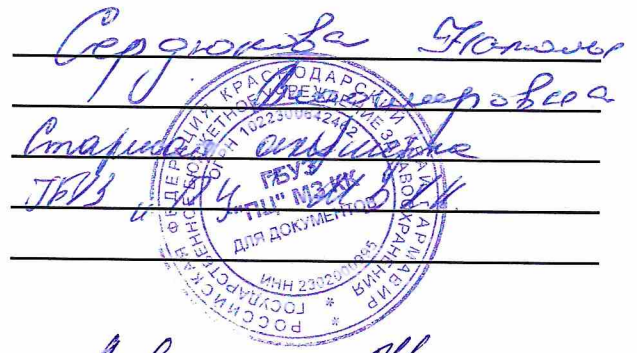 Сердюкова Наталья
Владимировна
Старшая акушерка
ГБУЗ "ПЦ" МЗ КК
РОССИЙСКАЯ ФЕДЕРАЦИЯ КРАСНОДАРСКИЙ КРАЙ Г АРМАВИР
ГОСУДАРСТВЕННОЕ БЮДЖЕТНОЕ УЧРЕЖДЕНИЕ ЗДРАВООХРАНЕНИЯ
ОГРН
ГБУЗ
"ПЦ" МЗ КК
ДЛЯ ДОКУМЕНТОВ
ИНН